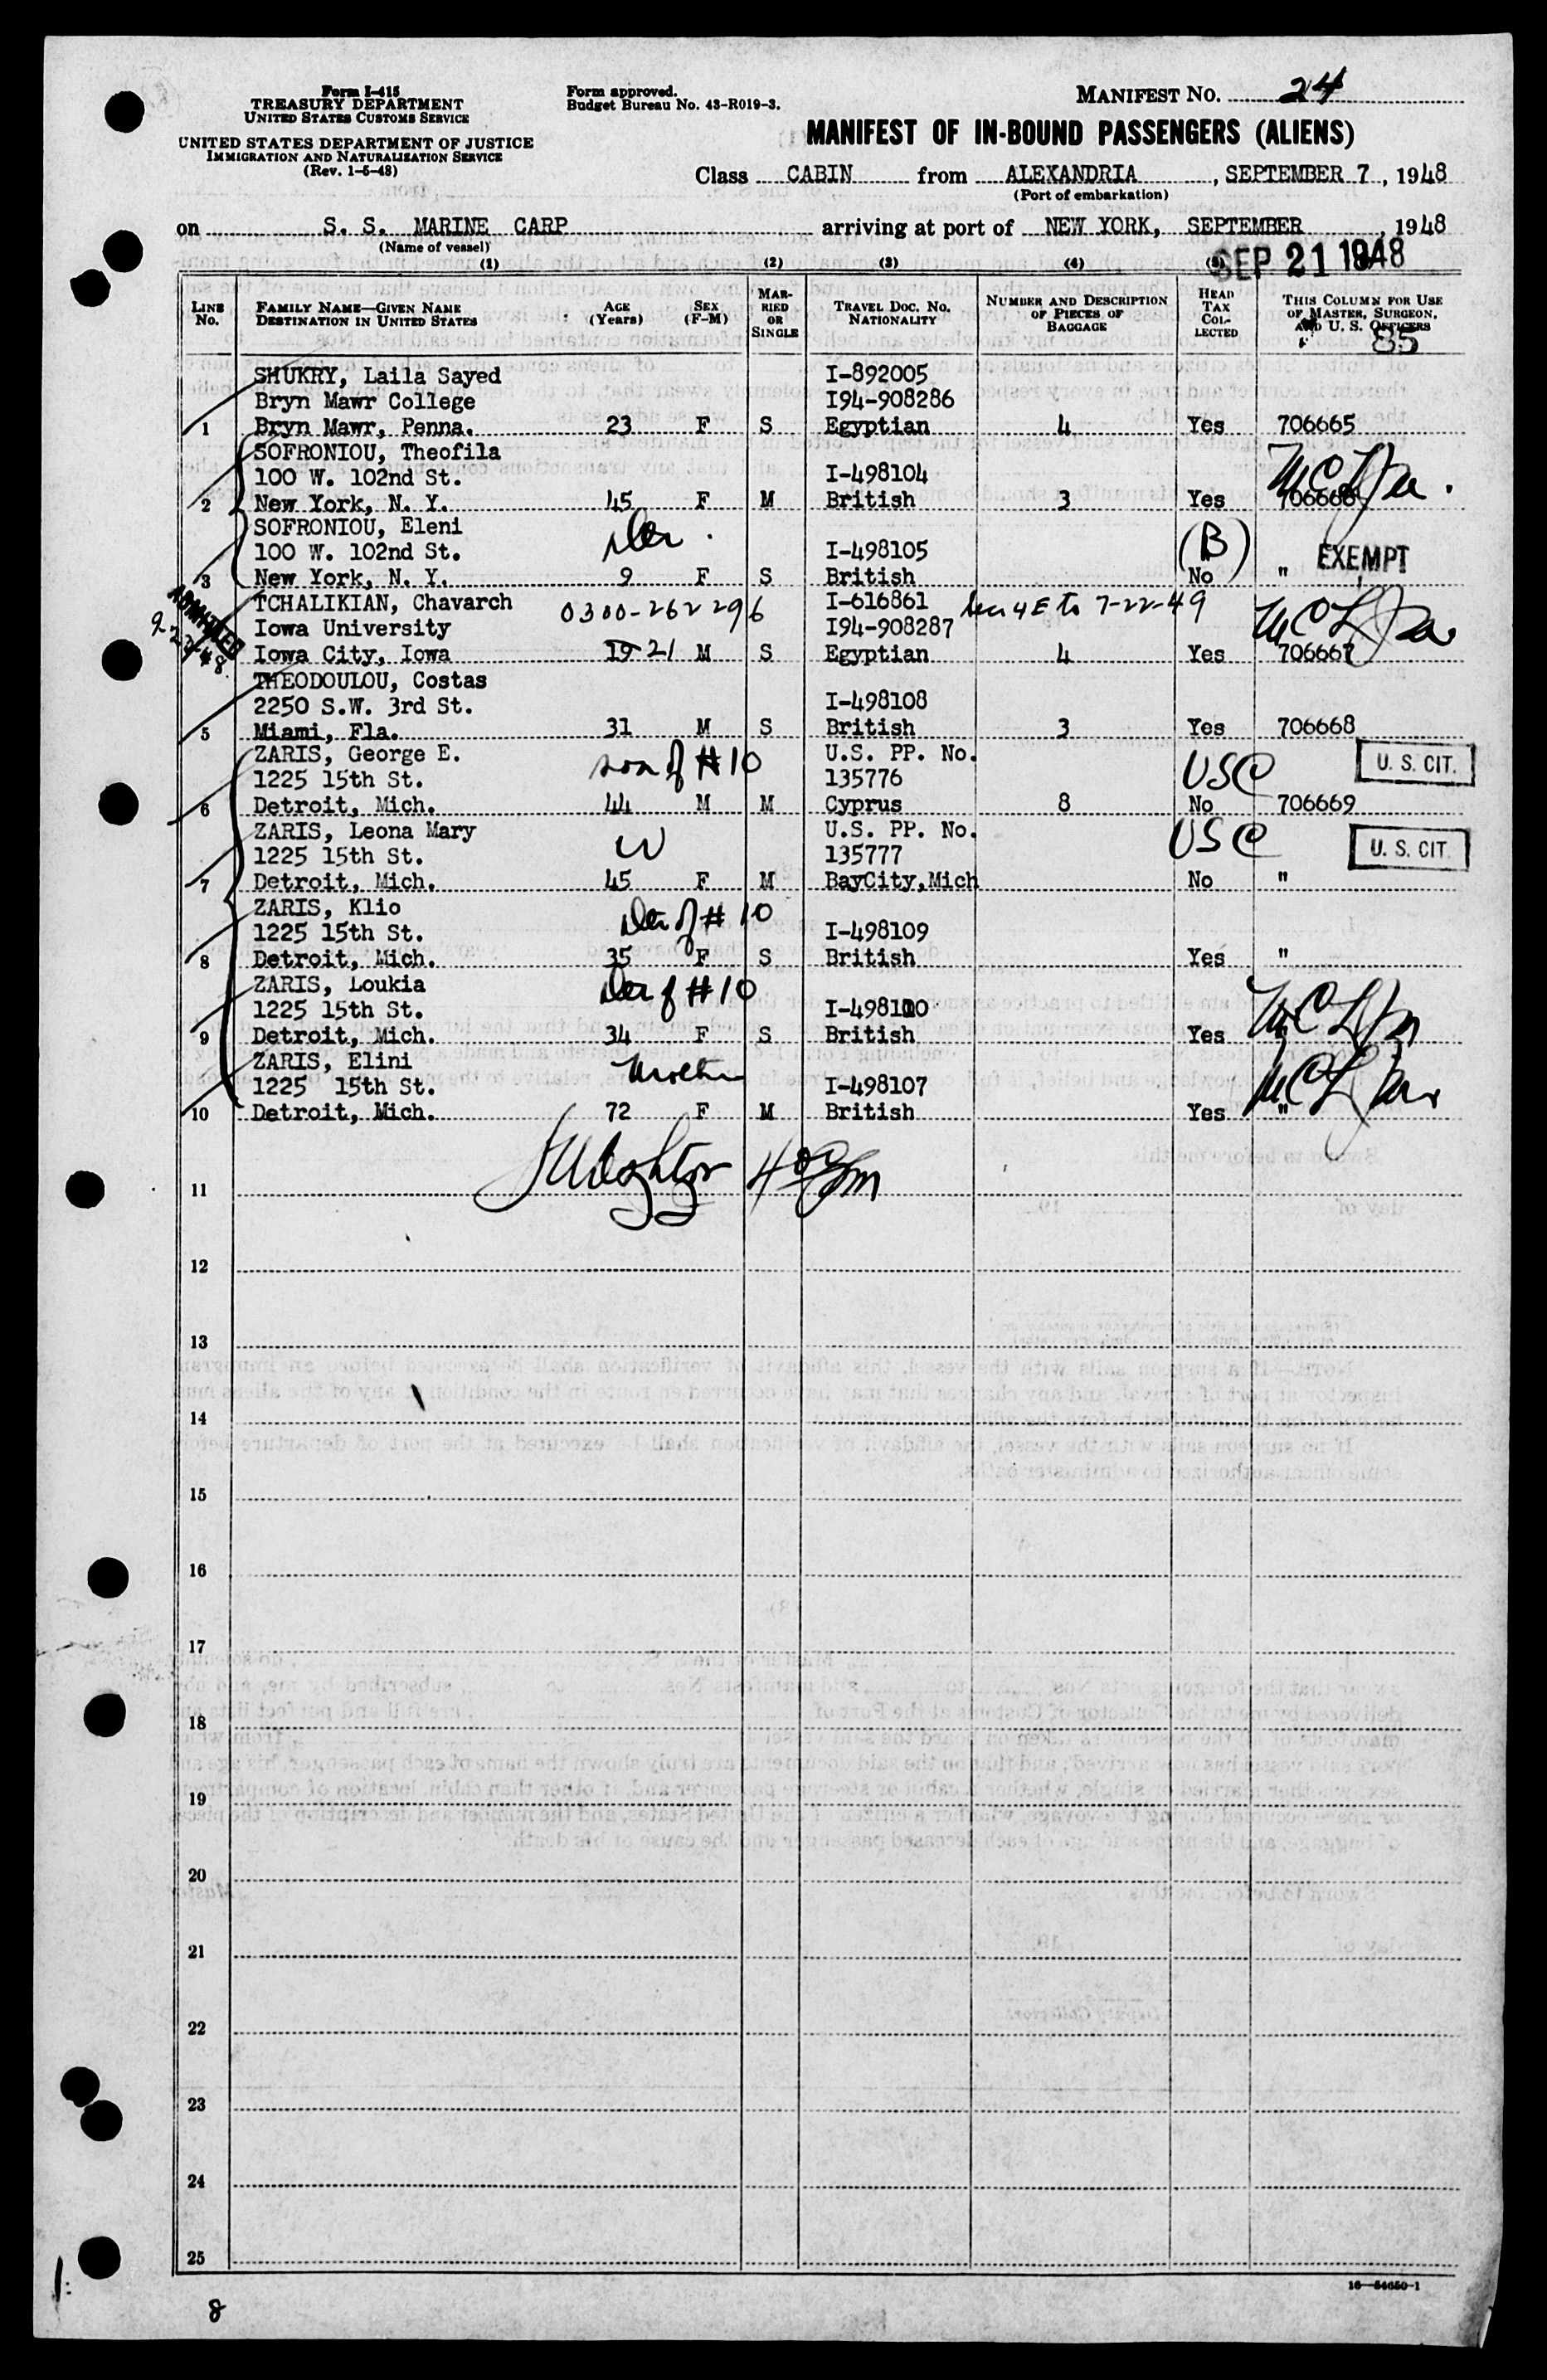 Form I-415
TREASURY DEPARTMENT
UNITED STATES CUSTOMS SERVICE
UNITED STATES DEPARTMENT OF JUSTICE
IMMIGRATION AND NATURALIZATION SERVICE
(Rev. 1-5-48)
Form approved.
Budget Bureau No. 43-R019-3.
MANIFEST NO. 24
MANIFEST OF IN-BOUND PASSENGERS (ALIENS)
Class CABIN from ALEXANDRIA, SEPTEMBER 7, 1948
(Port of embarkation)
on S. S. MARINE CARP arriving at port of NEW YORK, SEPTEMBER, 1948
(Name of vessel)
SEP 21 1948
(1) (2) (3) (4) (5)
LINE No. FAMILY NAME—GIVEN NAME DESTINATION IN UNITED STATES AGE (Years) SEX (F-M) MARRIED OR SINGLE TRAVEL DOC. NO. NATIONALITY NUMBER AND DESCRIPTION OF PIECES OF BAGGAGE HEAD TAX COLLECTED THIS COLUMN FOR USE OF MASTER, SURGEON, AND U. S. OFFICERS
85
SHUKRY, Laila Sayed I-892005
Bryn Mawr College I94-908286
1 Bryn Mawr, Penna. 23 F S Egyptian 4 Yes 706665
SOFRONIOU, Theofila
100 W. 102nd St. I-498104
2 New York, N. Y. 45 F M British 3 Yes 706666
SOFRONIOU, Eleni Dau.
100 W. 102nd St. I-498105 (B) EXEMPT
3 New York, N. Y. 9 F S British No "
ADMITTED
9-22-48
TCHALIKIAN, Chavarch 0300-262296 I-616861 Sec 4E to 7-22-49
Iowa University I94-908287
Iowa City, Iowa 19 21 M S Egyptian 4 Yes 706667
THEODOULOU, Costas
2250 S.W. 3rd St. I-498108
5 Miami, Fla. 31 M S British 3 Yes 706668
ZARIS, George E. son of #10 U.S. PP. No. U. S. CIT.
1225 15th St. 135776 USC
6 Detroit, Mich. 44 M M Cyprus 8 No 706669
ZARIS, Leona Mary W U.S. PP. No. USC
1225 15th St. 135777 U. S. CIT.
7 Detroit, Mich. 45 F M BayCity,Mich No "
ZARIS, Klio Dau of #10
1225 15th St. I-498109
8 Detroit, Mich. 35 F S British Yes "
ZARIS, Loukia Dau of #10
1225 15th St. I-498110
9 Detroit, Mich. 34 F S British Yes "
ZARIS, Elini Mother
1225 15th St. I-498107
10 Detroit, Mich. 72 F M British Yes "
11
12
13
14
15
16
17
18
19
20
21
22
23
24
25
16—54650-1
8